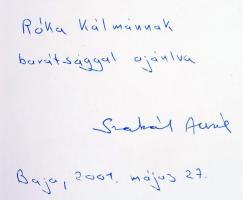 Róka Kálmánnak
barátsággal ajánlva
Szakál Aurél
Baja, 2001. május 27.